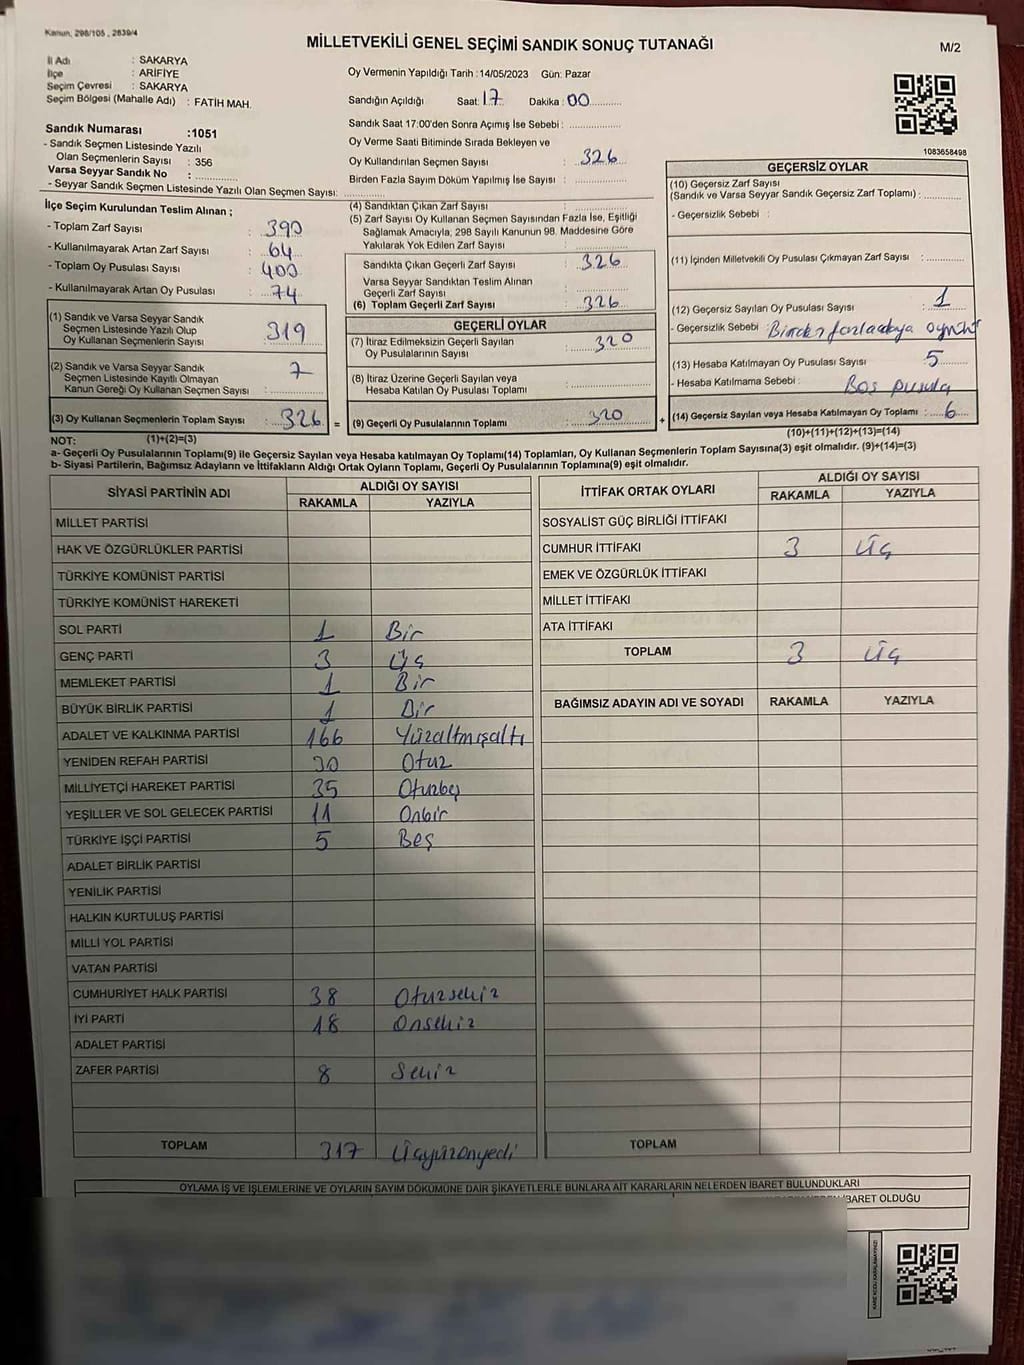 Kanun, 298/105 , 2839/4
MİLLETVEKİLİ GENEL SEÇİMİ SANDIK SONUÇ TUTANAĞI
M/2
İl Adı : SAKARYA
İlçe : ARİFİYE
Seçim Çevresi : SAKARYA
Seçim Bölgesi (Mahalle Adı) : FATİH MAH.
Sandık Numarası :1051
- Sandık Seçmen Listesinde Yazılı
Olan Seçmenlerin Sayısı : 356
Varsa Seyyar Sandık No :
- Seyyar Sandık Seçmen Listesinde Yazılı Olan Seçmen Sayısı:
Oy Vermenin Yapıldığı Tarih :14/05/2023 Gün: Pazar
Sandığın Açıldığı Saat: 17 Dakika : 00
Sandık Saat 17:00'den Sonra Açımış İse Sebebi :
Oy Verme Saati Bitiminde Sırada Bekleyen ve
Oy Kullandırılan Seçmen Sayısı : 326
Birden Fazla Sayım Döküm Yapılmış İse Sayısı :
1083658498
İlçe Seçim Kurulundan Teslim Alınan ;
- Toplam Zarf Sayısı : 390
- Kullanılmayarak Artan Zarf Sayısı : 64
- Toplam Oy Pusulası Sayısı : 400
- Kullanılmayarak Artan Oy Pusulası : 74
(1) Sandık ve Varsa Seyyar Sandık
Seçmen Listesinde Yazılı Olup
Oy Kullanan Seçmenlerin Sayısı : 319
(2) Sandık ve Varsa Seyyar Sandık
Seçmen Listesinde Kayıtlı Olmayan
Kanun Gereği Oy Kullanan Seçmen Sayısı : 7
(3) Oy Kullanan Seçmenlerin Toplam Sayısı : 326 =
(4) Sandıktan Çıkan Zarf Sayısı :
(5) Zarf Sayısı Oy Kullanan Seçmen Sayısından Fazla İse, Eşitliği
Sağlamak Amacıyla, 298 Sayılı Kanunun 98. Maddesine Göre
Yakılarak Yok Edilen Zarf Sayısı :
Sandıkta Çıkan Geçerli Zarf Sayısı : 326
Varsa Seyyar Sandıktan Teslim Alınan
Geçerli Zarf Sayısı :
(6) Toplam Geçerli Zarf Sayısı : 326
GEÇERLİ OYLAR
(7) İtiraz Edilmeksizin Geçerli Sayılan
Oy Pusulalarının Sayısı : 320
(8) İtiraz Üzerine Geçerli Sayılan veya
Hesaba Katılan Oy Pusulası Toplamı :
(9) Geçerli Oy Pusulalarının Toplamı : 320 +
GEÇERSİZ OYLAR
(10) Geçersiz Zarf Sayısı
(Sandık ve Varsa Seyyar Sandık Geçersiz Zarf Toplamı) :
- Geçersizlik Sebebi :
(11) İçinden Milletvekili Oy Pusulası Çıkmayan Zarf Sayısı :
(12) Geçersiz Sayılan Oy Pusulası Sayısı : 1
- Geçersizlik Sebebi :
(13) Hesaba Katılmayan Oy Pusulası Sayısı : 5
- Hesaba Katılmama Sebebi : Boş pusula
(14) Geçersiz Sayılan veya Hesaba Katılmayan Oy Toplamı : 6
NOT: (1)+(2)=(3)
(10)+(11)+(12)+(13)=(14)
a- Geçerli Oy Pusulalarının Toplamı(9) ile Geçersiz Sayılan veya Hesaba katılmayan Oy Toplamı(14) Toplamları, Oy Kullanan Seçmenlerin Toplam Sayısına(3) eşit olmalıdır. (9)+(14)=(3)
b- Siyasi Partilerin, Bağımsız Adayların ve İttifakların Aldığı Ortak Oyların Toplamı, Geçerli Oy Pusulalarının Toplamına(9) eşit olmalıdır.
SİYASİ PARTİNİN ADI ALDIĞI OY SAYISI
RAKAMLA YAZIYLA
MİLLET PARTİSİ
HAK VE ÖZGÜRLÜKLER PARTİSİ
TÜRKİYE KOMÜNİST PARTİSİ
TÜRKİYE KOMÜNİST HAREKETİ
SOL PARTİ 1 Bir
GENÇ PARTİ 3 Üç
MEMLEKET PARTİSİ 1 Bir
BÜYÜK BİRLİK PARTİSİ 1 Bir
ADALET VE KALKINMA PARTİSİ 166 Yüzaltmışaltı
YENİDEN REFAH PARTİSİ 30 Otuz
MİLLİYETÇİ HAREKET PARTİSİ 35 Otuzbeş
YEŞİLLER VE SOL GELECEK PARTİSİ 11 Onbir
TÜRKİYE İŞÇİ PARTİSİ 5 Beş
ADALET BİRLİK PARTİSİ
YENİLİK PARTİSİ
HALKIN KURTULUŞ PARTİSİ
MİLLİ YOL PARTİSİ
VATAN PARTİSİ
CUMHURİYET HALK PARTİSİ 38 Otuzsekiz
İYİ PARTİ 18 Onsekiz
ADALET PARTİSİ
ZAFER PARTİSİ 8 Sekiz
TOPLAM 317 Üçyüzonyedi
İTTİFAK ORTAK OYLARI ALDIĞI OY SAYISI
RAKAMLA YAZIYLA
SOSYALİST GÜÇ BİRLİĞİ İTTİFAKI
CUMHUR İTTİFAKI 3 Üç
EMEK VE ÖZGÜRLÜK İTTİFAKI
MİLLET İTTİFAKI
ATA İTTİFAKI
TOPLAM 3 Üç
BAĞIMSIZ ADAYIN ADI VE SOYADI RAKAMLA YAZIYLA
TOPLAM
OYLAMA İŞ VE İŞLEMLERİNE VE OYLARIN SAYIM DÖKÜMÜNE DAİR ŞİKAYETLERLE BUNLARA AİT KARARLARIN NELERDEN İBARET BULUNDUKLARI
İBARET OLDUĞU